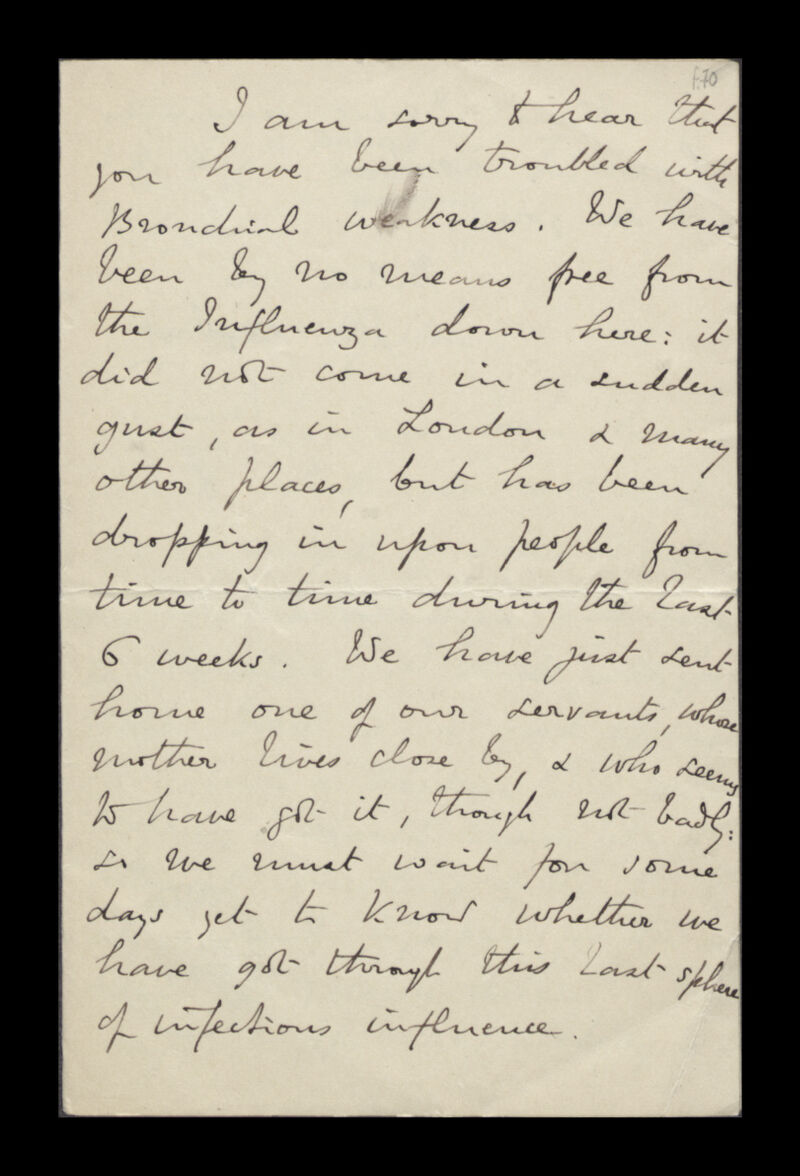 f.70
I am sorry to hear that
you have been troubled with
Bronchial weakness. We have
been by no means free from
the Influenza down here: it
did not come in a sudden
gust, as in London & many
other places, but has been
dropping in upon people from
time to time during the last
6 weeks. We have just sent
home one of our servants, whose
mother lives close by, & who seems
to have got it, though not badly:
so we must wait for some
days yet to know whether we
have got through this last sphere
of infectious influence.